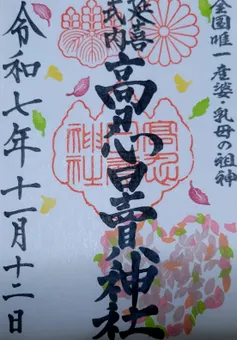 全国唯一産婆・乳母の祖神
延喜
式内
高忍日賣神社
令和七年十一月十二日